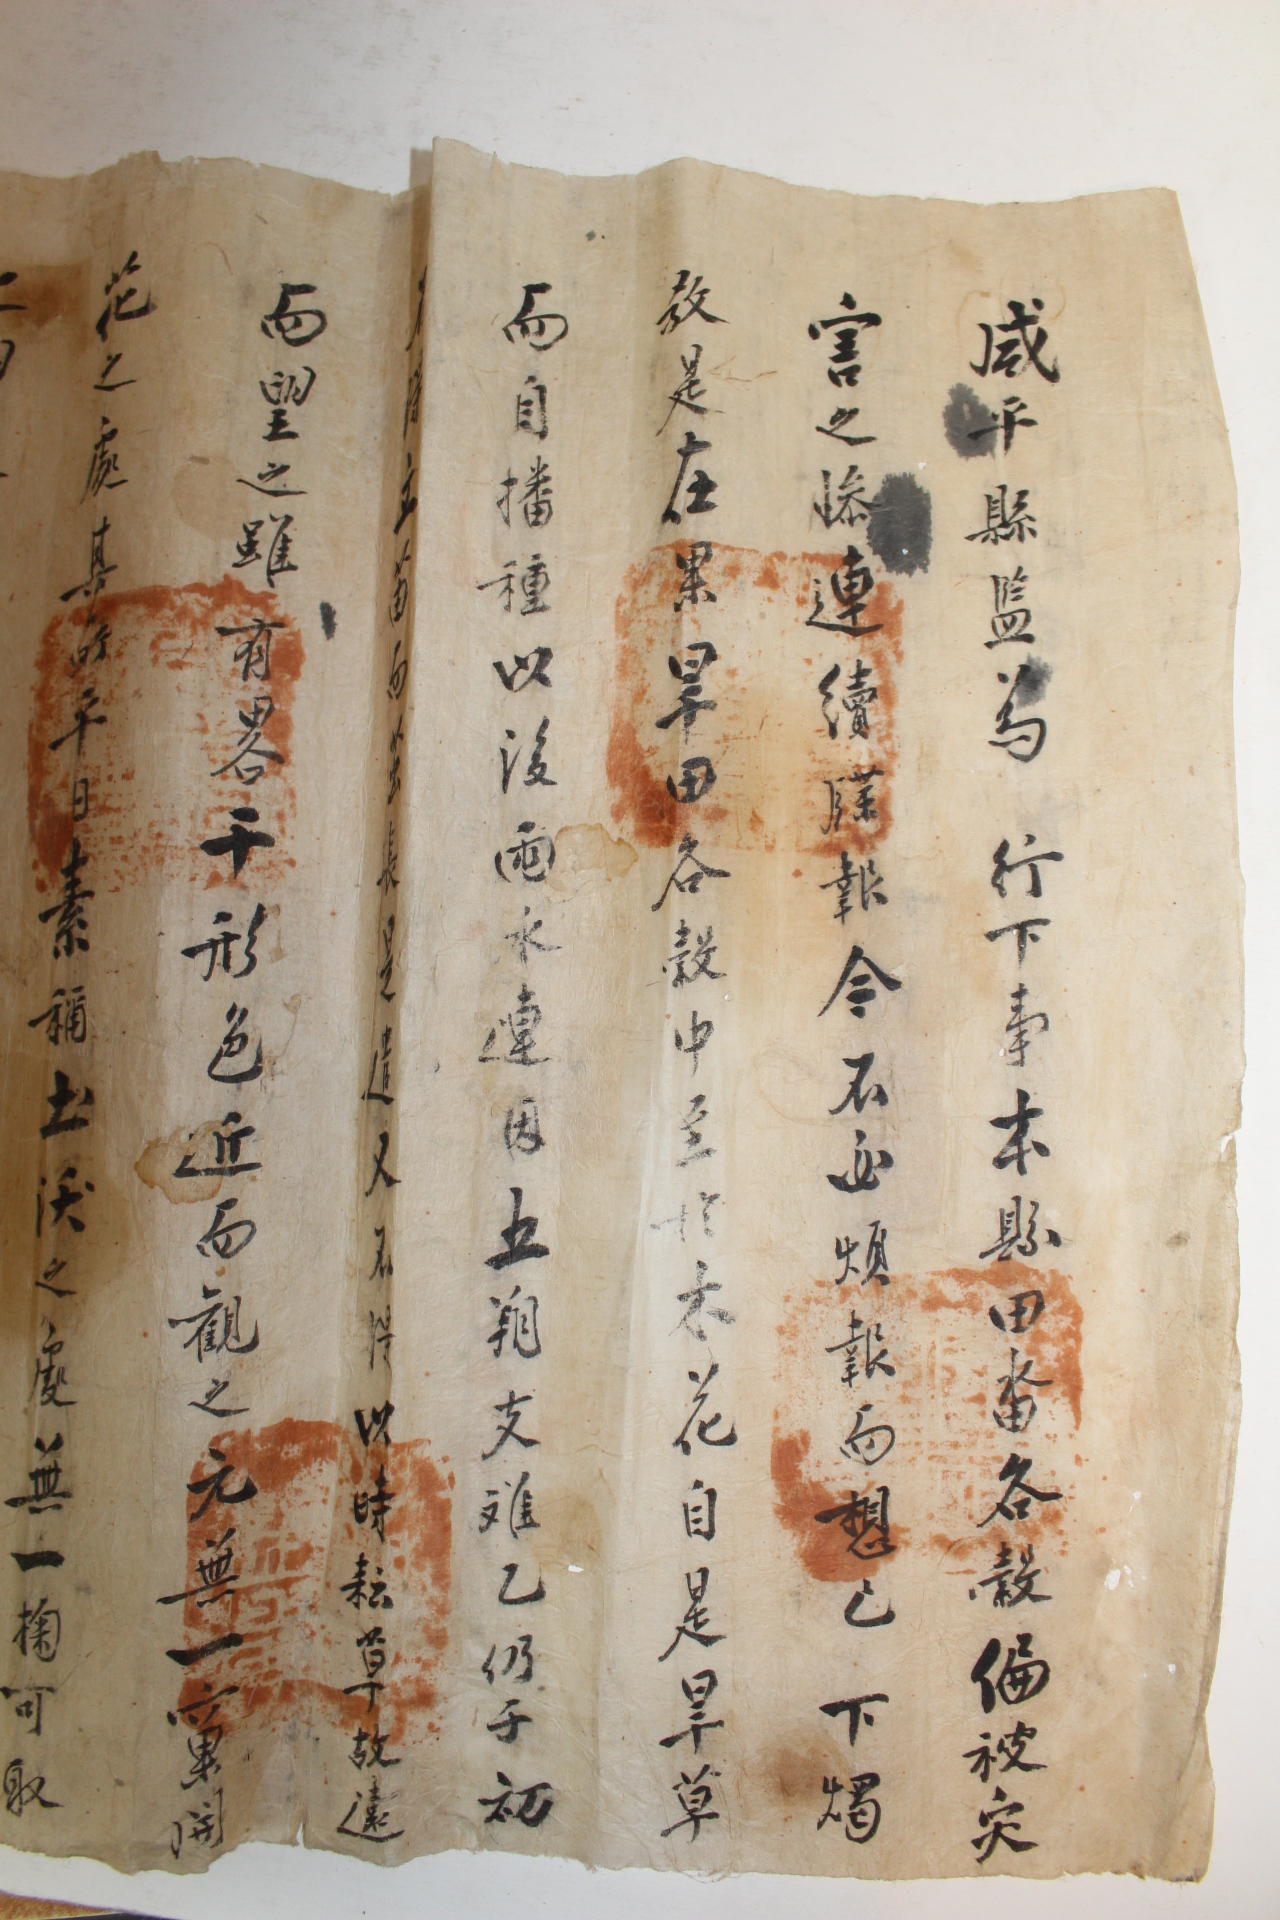 咸平縣監爲 行下事本縣田畓各穀偏被灾
害之緣連續牒報今不必煩報而想已 下燭
敎是在果旱田各穀中至於木花自是旱草
而自播種以後雨水連因五朔支離乙仍于初
立苗而 長是遣又不得以時耘草故遠
而望之雖有略干形色近而觀之元無一窠開
花之處其所平日素稱土沃之處無一掬可取